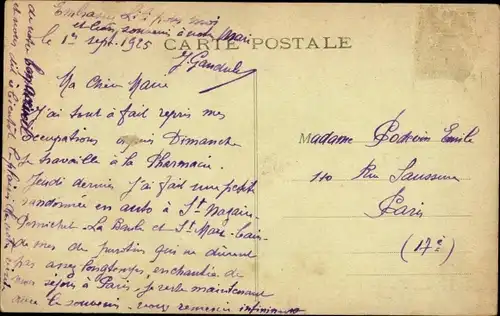 Embrasse pour moi
et bon souvenir à ton Mari
le 1er Sept. 1925
CARTE POSTALE
J Gandub
Ma Chère Marie
J'ai tout à fait repris mes
occupations depuis Dimanche
je travaille à la Pharmacie.
Jeudi dernier j'ai fait une petite
randonnée en auto à St Nazaire
Pornichet - La Baule et St Marc
de mes de
pas assez longtemps, enchantée de
mon séjour à Paris, je reste maintenant
avec le souvenir - vous remercie infiniment
Madame Podevin Emile
110 Rue Saussure
Paris
(17e)